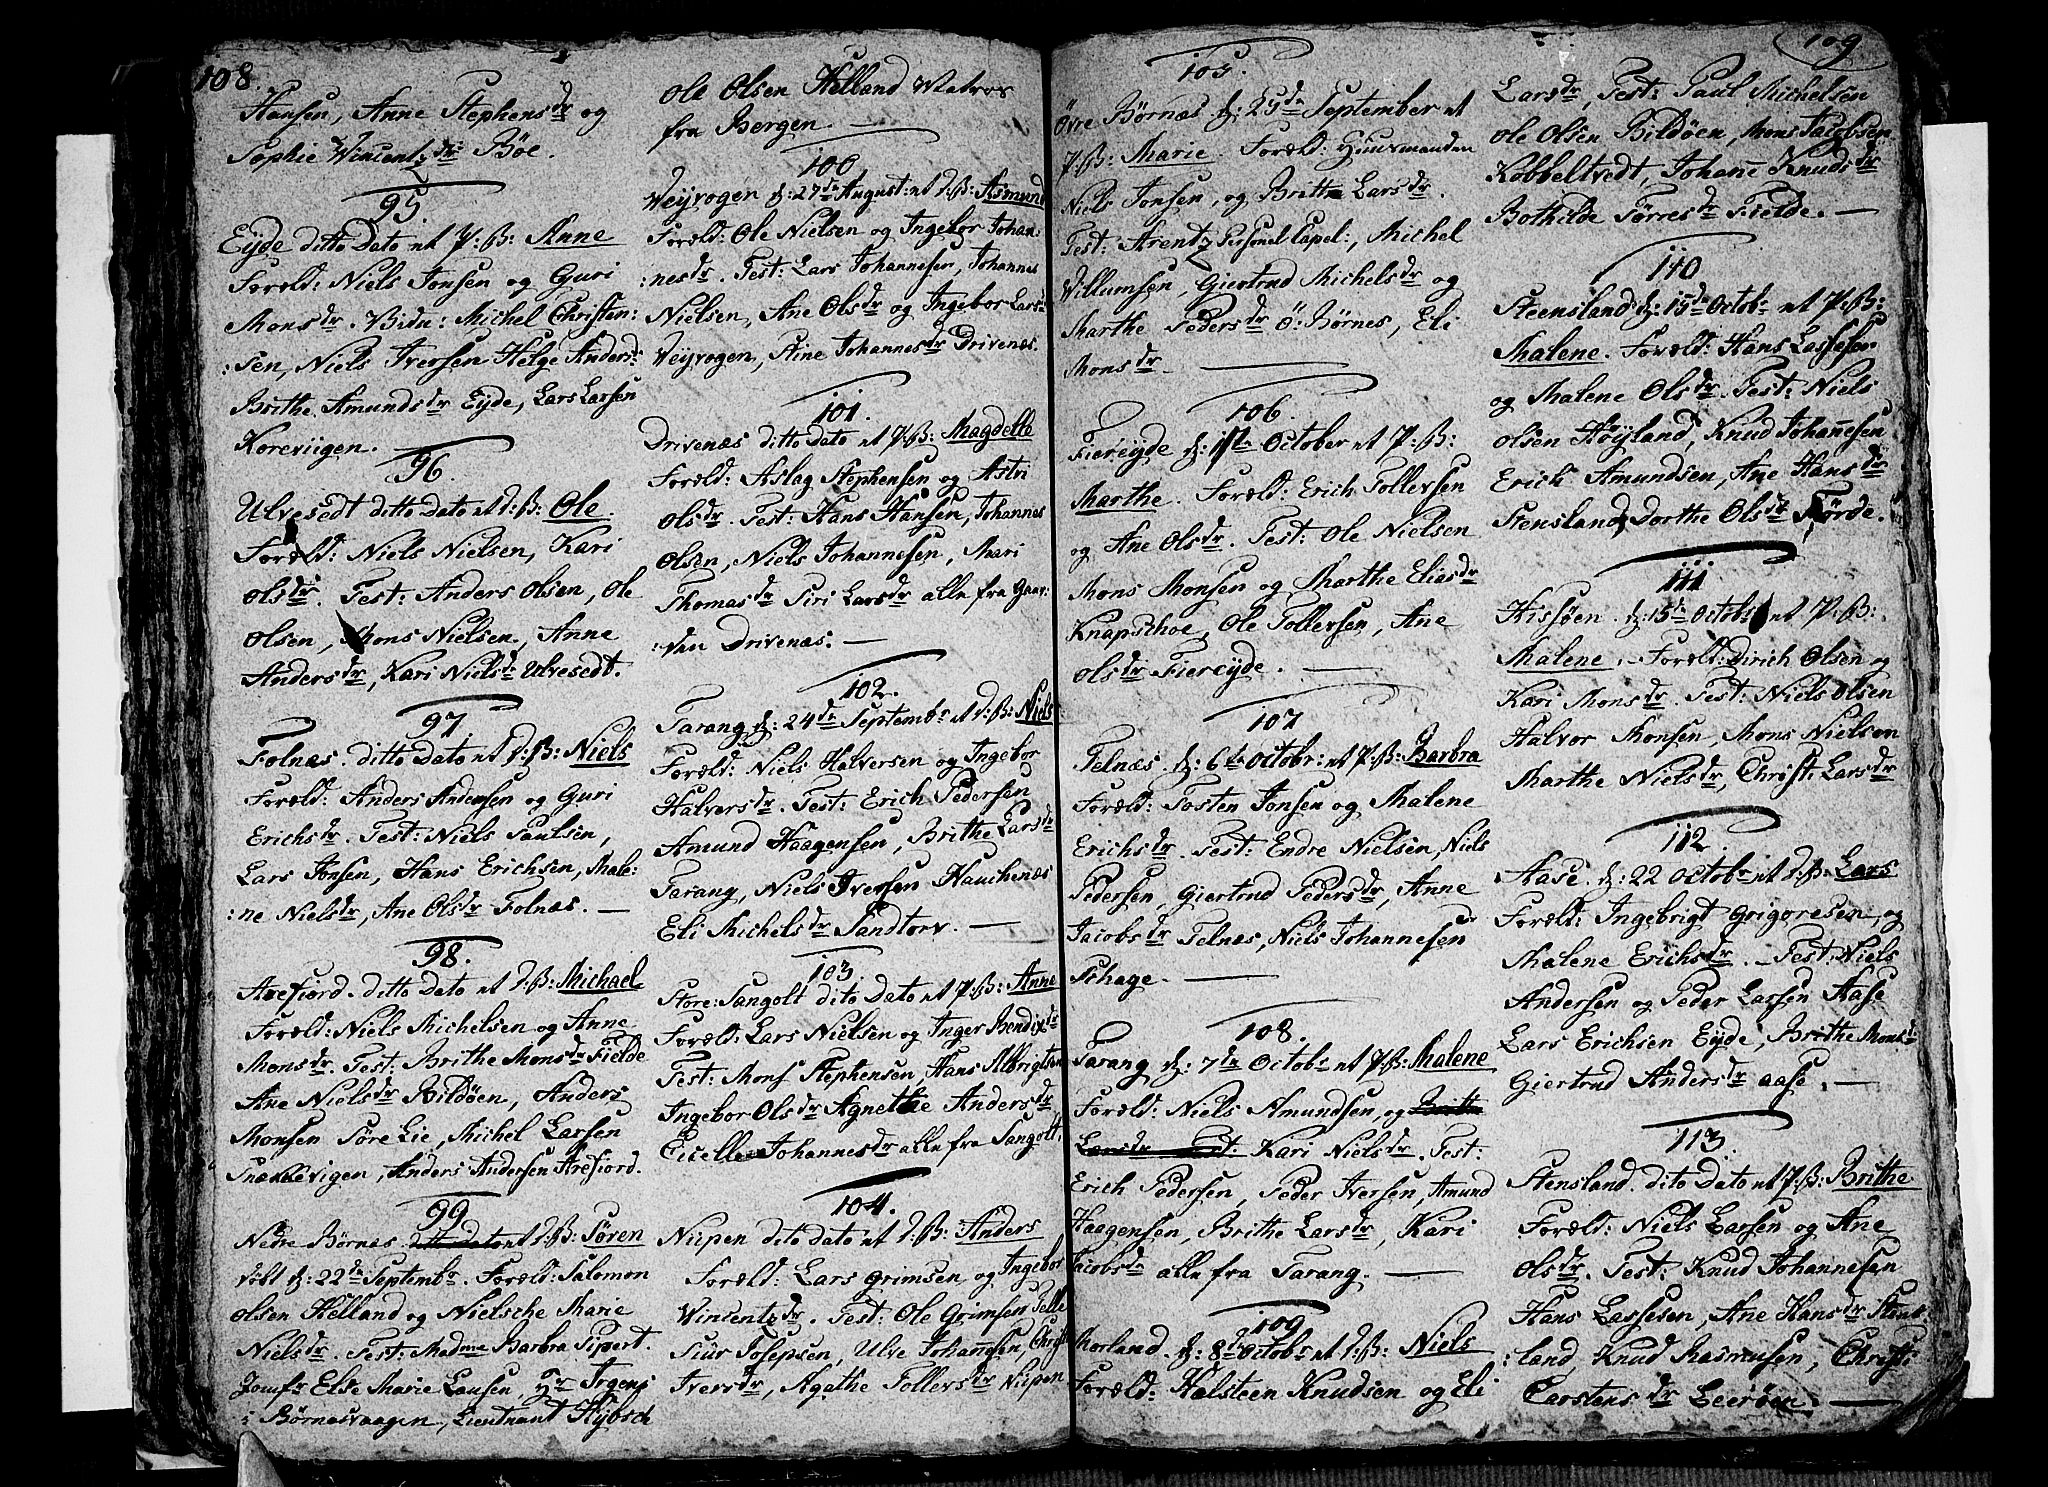 108.
Hansen, Anne Stephensdr og
Sophie Wincentzdr Böe.
95.
Eyde ditto Dato nt P:B: Anne
Foræld: Niels Jonsen og Guri
Monsdr. Vidn: Michel Christen:
:sen, Niels Iversen Helge Anders:
Brithe Amundsdr Eyde, Lars Larsen
Koreviigen.
96.
Ulvesedt ditto Dato nt d:B: Ole.
Foræld: Niels Nielsen, Kari
Olsdr. Test: Anders Olsen, Ole
Olsen, Mons Nielsen, Anne
Andersdr, Kari Nielsdr Ulvesedt.
97
Folnæs. ditto Dato nt d:B: Niels
Foræld: Anders Andersen og Guri
Erichsdr. Test: Niels Paulsen,
Lars Jonsen, Hans Erichsen, Male:
:ne Nielsdr, Ane Olsdr Folnæs. —
98.
Arefiord. ditto Dato nt d:B: Michael
Foræld: Niels Michelsen og Anne
Monsdr. Test: Brithe Monsdr Fielde
Ane Nielsdr Bildöen, Anders
Monsen Söre Lie, Michel Larsen
Snækkevigen, Anders Andersen Arefiord.
99
Nedre Börnæs ditto Dato nt d:B: Sören
döbt d: 22de Septembr. Foræld: Salomon
Olsen Helland og Nielsche Marie
Nielsdr. Test: Madme Barbra Sipert.
Jomfr Else Marie Lausen, Hr Irgens
i Börnæsvaagen, Lieutnant Hybsch
Ole Olsen Helland Matros
fra Bergen. —
100
Veyvogen d: 27de August: nt d:B: Asmund
Foræld: Ole Nielsen og Ingebor Johan:
:nesdr. Test: Lars Johannesen, Johannes
Nielsen, Ane Olsdr og Ingebor Lars:
Veyvogen, Stine Johannesdr Drivenæs.
101.
Drivenæs ditto Dato nt P:B: Magdelle
Foræld: Aslag Stephensen og Astri
Olsdr. Test: Hans Hansen, Johannes
Olsen, Niels Johannesen, Mari
Thomasdr Siri Larsdr alle fra Gaar:
:den Drivenæs. —
102.
Tarang d: 24de Septembr nt d:B: Niels
Foræld: Niels Halversen og Ingebor
Halversdr. Test: Erich Pedersen
Amund Haagensen, Brithe Larsdr
Tarang, Niels Iversen Hauchenæs
Eli Michelsdr Sandtorv. —
103.
Store: Sangolt dito Dato nt P:B: Anne
Foræld: Lars Nielsen og Inger Bendixdr
Test: Mons Stephensen, Hans Albrigtsen
Ingebor Olsdr Agnethe Andersdr
Johannesdr alle fra Sangolt.
104.
Nupen dito Dato nt d:B: Anders
Foræld: Lars Grimsen og Ingebor
Wincentzdr. Test: Ole Grimsen Telle
Siur Josepsen, Ulve Johannesen, Christi
Iversdr, Agathe Tollersdr Nupen
105.
Övre Börnæs d: 25de September nt
P:B: Marie. Foræld: Huusmanden
Niels Jonsen, og Britte Larsdr.
Test: Arentz Personel Capel:, Michel
Villumsen, Giertrud Michelsdr og
Marthe Pedersdr Ö: Börnes, Eli
Monsdr —
106.
Fiereyde d: 1ste October nt P:B:
Marthe. Foræld: Erich Tollevsen
og Ane Olsdr. Test: Ole Nielsen
Mons Monsen og Marthe Eliasdr
Knapschoe, Ole Tollevsen, Ane
Olsdr Fiereyde. —
107
Telnæs. d: 6te Octobr: nt P:B: Barbra
Foræld: Tosten Jonsen og Malene
Erichsdr. Test: Endre Nielsen, Niels
Pedersen, Giertrud Pedersdr, Anne
Jacobsdr Telnæs, Niels Johannesen
Schage. —
108.
Tarang d: 7de Octobr nt P:B: Malene
Foræld: Niels Amundsen, og Britte
Larsdr Test: Kari Nielsdr. Test:
Erich Pedersen, Peder Iversen, Amund
Haagensen, Brithe Larsdr, Kari
Jacobsdr alle fra Tarang. —
109
Morland. d: 8de Octobr nt d:B: Niels
Foræld: Halsteen Knudsen og Eli
109
Larsdr, Test: Paul Michelsen
Ole Olsen Bildöen, Mons Jacobsen
Kobbeltvedt, Johane Knudsdr
Bothilde Törresdr Fielde. —
110
Steensland d: 15de Octobr nt P:B:
Malene. Foræld: Hans Lassesen
og Malene Olsdr. Test: Niels
Olsen Höyland, Knud Johannesen
Erick Amundsen, Ane Hansdr
Stensland, Dorthe Olsdr Förde.
111
Hissöen. d: 15de Octobr nt P:B:
Malene. Foræld: Dirich Olsen og
Kari Monsdr. Test: Niels Olsen
Halvor Monsen, Mons Nielsen
Marthe Nielsdr, Christi Larsdr
112.
Aase. d: 22 Octobr nt d:B: Lars
Foræld: Ingebrigt Grigoresen, og
Malene Erichsdr. Test: Niels
Andersen og Peder Larsen Aase
Lars Erichsen Eyde, Brithe Monsdr
Giertrud Andersdr Aase. —
113.
Stensland. dito Dato nt P:B: Brithe
Foræld: Niels Larsen og Ane
Olsdr. Test: Knud Johannesen
Hans Lassesen, Ane Hansdr Stens:
:land, Knud Rasmusen, Christi
Carstensdr Leeröen. —